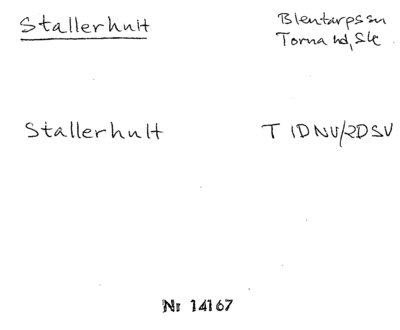 Stallerhult
Blentarps sn
Torna hd, Sk
Stallerhult
T 1DNV/2DSV
Nr 14167